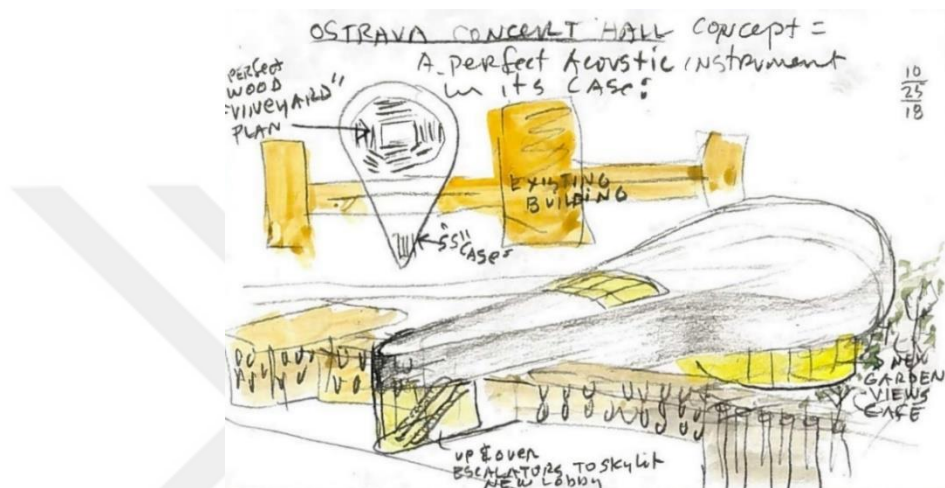 OSTRAVA CONCERT HALL CONCEPT =
A PERFECT ACOUSTIC INSTRUMENT
IN ITS CASE:
10
25
18
PERFECT
WOOD
"VINEYARD"
PLAN
EXISTING
BUILDING
"SS"
CASE
NEW
GARDEN
VIEWS
UP & OVER
ESCALATORS TO SKYLIT
NEW LOBBY